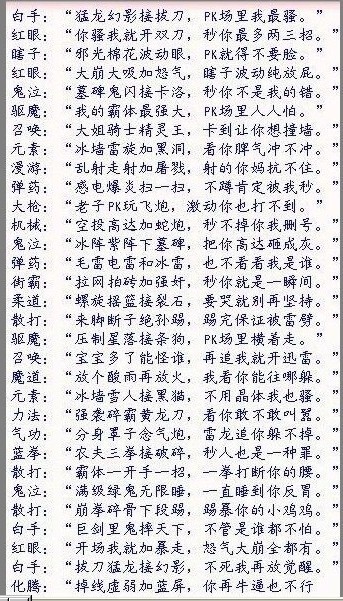 白手：“猛龙幻影接拔刀，PK场里我最骚。”
红眼：“你骚我就开双刀，秒你最多两三招。”
瞎子：“邪光棉花波动眼，PK就得不要脸。”
红眼：“大崩大吸加怒气，瞎子波动纯放屁。”
鬼泣：“墓碑鬼闪接卡洛，秒你不是我的错。”
驱魔：“我的霸体最强大，PK场里人人怕。”
召唤：“大姐骑士精灵王，卡到让你想撞墙。”
元素：“冰墙雷旋加黑洞，看你脾气冲不冲。”
漫游：“乱射走射加屠戮，射的你妈抗不住。”
弹药：“感电爆炎扫一扫，不蹲肯定被我秒。”
大枪：“老子PK玩飞炮，激动你也打不到。”
机械：“空投高达加蛇炮，秒不掉你我删号。”
鬼泣：“冰阵紫阵下墓碑，把你高达砸成灰。”
弹药：“毛雷电雷和冰雷，也不看看我是谁。”
街霸：“拉网拍砖加强奸，秒你就是一瞬间。”
柔道：“螺旋摇篮接裂石，要哭就别再坚持。”
散打：“来脚断子绝孙踢，踢完保证被雷劈。”
驱魔：“压制星落接条狗，PK场里横着走。”
召唤：“宝宝多了能怪谁，再追我就开迅雷。”
魔道：“放个酸雨再放火，我看你能往哪躲。”
元素：“冰墙雪人接黑猫，不用晶体我也骚。”
力法：“强袭碎霸黄龙刀，看你敢不敢叫嚣。”
气功：“分身罩子念气炮，雷龙追你躲不掉。”
蓝拳：“农夫三拳接破碎，秒人也是一种罪。”
散打：“霸体一开手一招，一拳打断你的腰。”
鬼泣：“满级绿鬼无限睡，一直睡到你反胃。”
散打：“崩拳碎骨下段踢，踢暴你的小鸡鸡。”
白手：“巨剑里鬼摔天下，不管是谁都不怕。”
红眼：“开场我就加暴走，怒气大崩全都有。”
白手：“拔刀猛龙接幻影，不死我再放觉醒。”
化腾：“掉线虚弱加蓝屏，你再牛逼也不行